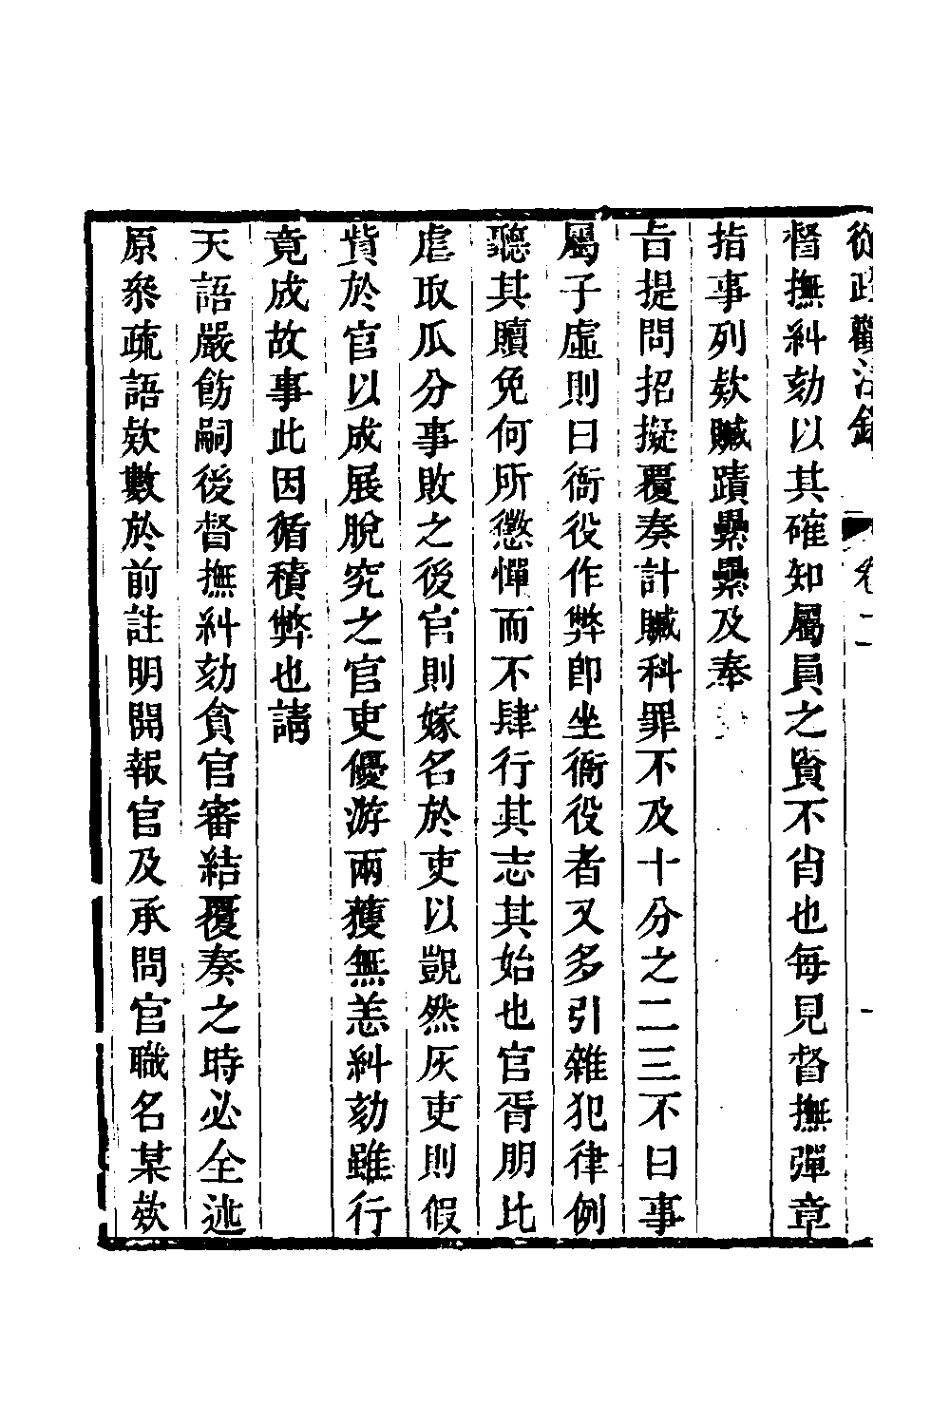 從政觀法錄 卷二
督撫糾劾以其確知屬員之賢不肖也每見督撫彈章
指事列欵贓蹟纍纍及奉
旨提問招擬覆奏計贓科罪不及十分之二三不曰事
屬子虛則曰衙役作弊卽坐衙役者又多引雜犯律例
聽其贖免何所懲憚而不肆行其志其始也官胥朋比
虐取瓜分事敗之後官則嫁名於吏以覬然灰吏則假
貲於官以成展脫究之官吏優游兩獲無恙糾劾雖行
竟成故事此因循積弊也請
天語嚴飭嗣後督撫糾劾貪官審結覆奏之時必全述
原叅疏語欵數於前註明開報官及承問官職名某欵